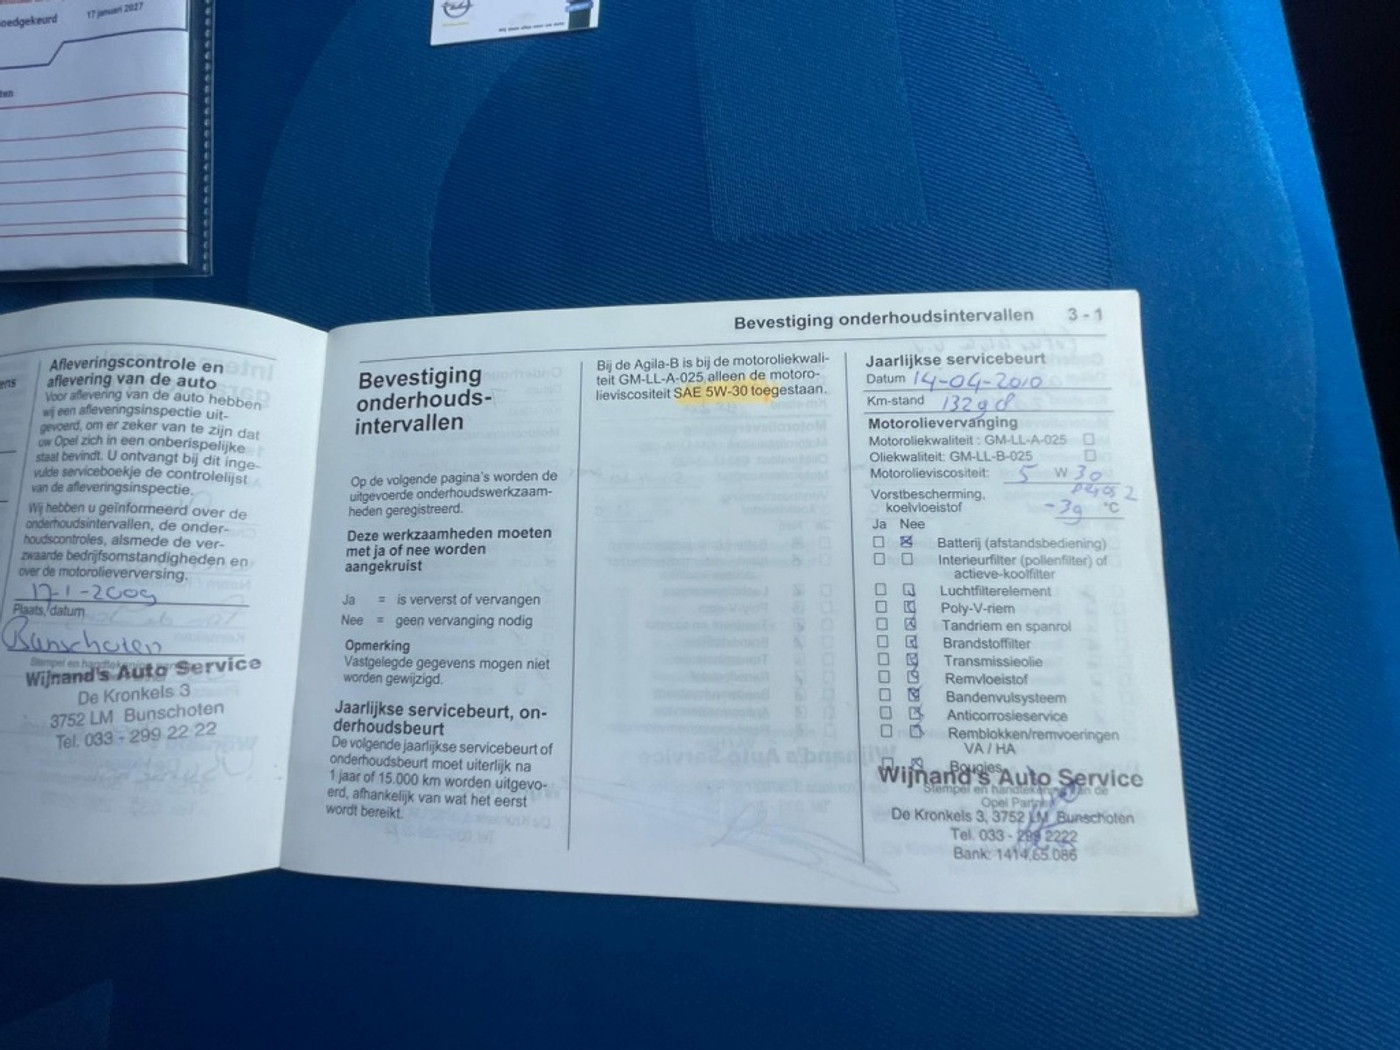 oedgekeurd
17 januari 2027
ten
Wij doen alles voor uw auto
Afleveringscontrole en
aflevering van de auto
Voor aflevering van de auto hebben
wij een afleveringsinspectie uit-
gevoerd, om er zeker van te zijn dat
uw Opel zich in een onberispelijke
staat bevindt. U ontvangt bij dit inge-
vulde serviceboekje de controlelijst
van de afleveringsinspectie.
Wij hebben u geïnformeerd over de
onderhoudsintervallen, de onder-
houdscontroles, alsmede de ver-
zwaarde bedrijfsomstandigheden en
over de motorolieverversing.
17-1-2009
Plaats, datum
Bunschoten
Stempel en
Wijnand's Auto Service
De Kronkels 3
3752 LM Bunschoten
Tel. 033 - 299 22 22
Bevestiging onderhoudsintervallen 3 - 1
Bevestiging
onderhouds-
intervallen
Op de volgende pagina's worden de
uitgevoerde onderhoudswerkzaam-
heden geregistreerd.
Deze werkzaamheden moeten
met ja of nee worden
aangekruist
Ja = is ververst of vervangen
Nee = geen vervanging nodig
Opmerking
Vastgelegde gegevens mogen niet
worden gewijzigd.
Jaarlijkse servicebeurt, on-
derhoudsbeurt
De volgende jaarlijkse servicebeurt of
onderhoudsbeurt moet uiterlijk na
1 jaar of 15.000 km worden uitgevo-
erd, afhankelijk van wat het eerst
wordt bereikt.
Bij de Agila-B is bij de motoroliekwali-
teit GM-LL-A-025 alleen de motoro-
lieviscositeit SAE 5W-30 toegestaan.
Jaarlijkse servicebeurt
Datum 14-04-2010
Km-stand
Motorolievervanging
Motoroliekwaliteit : GM-LL-A-025
Oliekwaliteit: GM-LL-B-025
Motorolieviscositeit: 5 W 30
Vorstbescherming,
koelvloeistof °C
Ja Nee
Batterij (afstandsbediening)
Interieurfilter (pollenfilter) of
actieve-koolfilter
Luchtfilterelement
Poly-V-riem
Tandriem en spanrol
Brandstoffilter
Transmissieolie
Remvloeistof
Bandenvulsysteem
Anticorrosieservice
Remblokken/remvoeringen
VA / HA
Bougies
Wijnand's Auto Service
Stempel en handtekening van de
Opel Partner
De Kronkels 3, 3752 LM Bunschoten
Tel. 033 - 299 2222
Bank: 1414.65.086